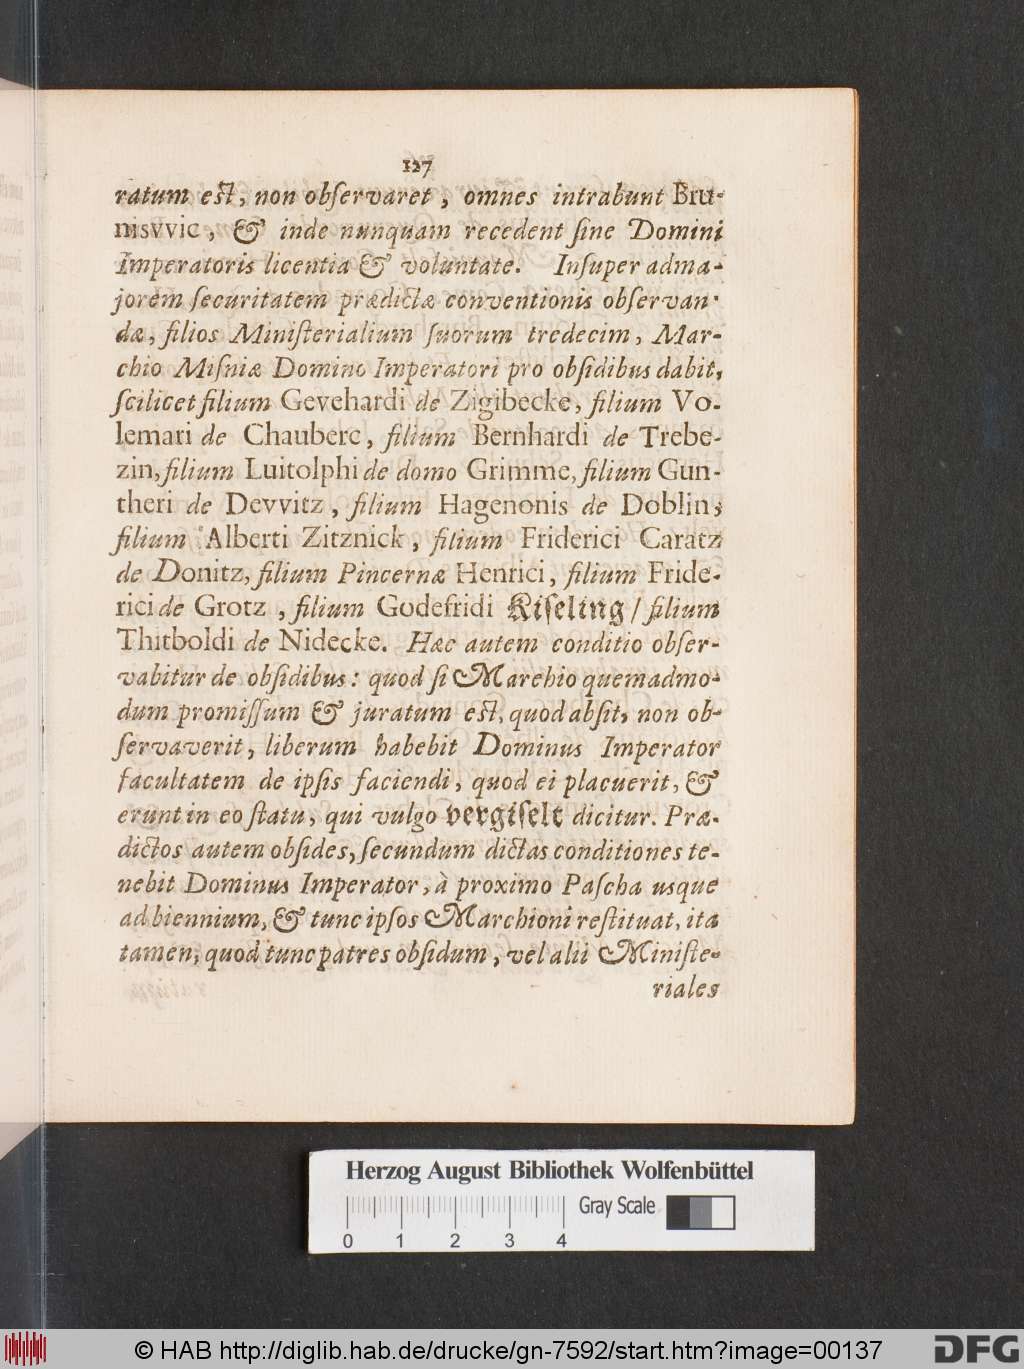 127
ratum eſt, non obſervaret, omnes intrabunt Bru-
nisvvic, & inde nunquam recedent ſine Domini
Imperatoris licentia & voluntate. Inſuper adma-
jorem ſecuritatem prædictæ conventionis obſervan-
dæ, filios Miniſterialium ſuorum tredecim, Mar-
chio Miſniæ Domino Imperatori pro obſidibus dabit,
ſcilicet filium Gevehardi de Zigibecke, filium Vo-
lemari de Chauberc, filium Bernhardi de Trebe-
zin, filium Luitolphi de domo Grimme, filium Gun-
theri de Devvitz, filium Hagenonis de Doblin,
filium Alberti Zitznick, filium Friderici Caratz
de Donitz, filium Pincernæ Henrici, filium Fride-
rici de Grotz, filium Godefridi Kiſeling / filium
Thitboldi de Nidecke. Hæc autem conditio obſer-
vabitur de obſidibus: quod ſi Marchio quemadmo-
dum promiſſum & juratum eſt, quod abſit, non ob-
ſervaverit, liberum habebit Dominus Imperator
facultatem de ipſis faciendi, quod ei placuerit, &
erunt in eo ſtatu, qui vulgo vergiſelt dicitur. Præ-
dictos autem obſides, ſecundum dictas conditiones te-
nebit Dominus Imperator, à proximo Paſcha usque
ad biennium, & tunc ipſos Marchioni reſtituat, ita
tamen, quod tunc patres obſidum, vel alii Miniſte-
riales
Herzog August Bibliothek Wolfenbüttel
Gray Scale
0 1 2 3 4
© HAB http://diglib.hab.de/drucke/gn-7592/start.htm?image=00137
DFG